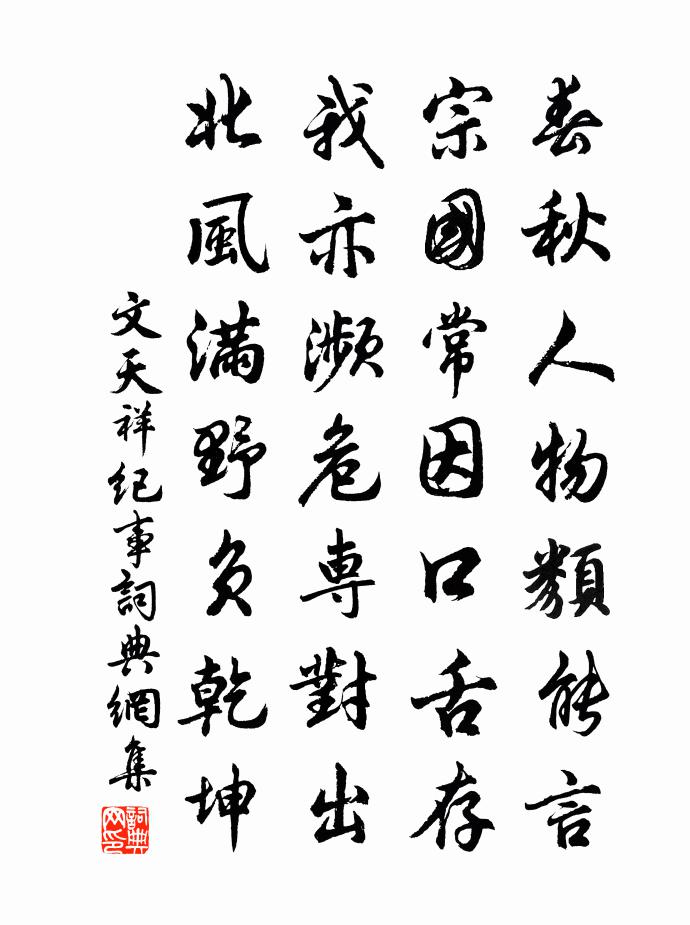 春秋人物類能言
宗國常因口舌存
我亦瀕危專對出
北風滿野負乾坤
文天祥紀事詞典網集
詞典
网印